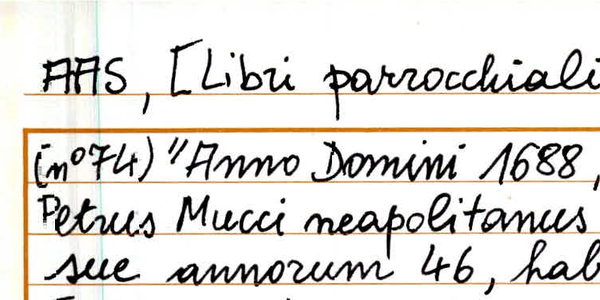 AAS, [Libri parrocchiali
(n°74) "Anno Domini 1688,
Petrus Mucci neapolitanus
sue annorum 46, hab